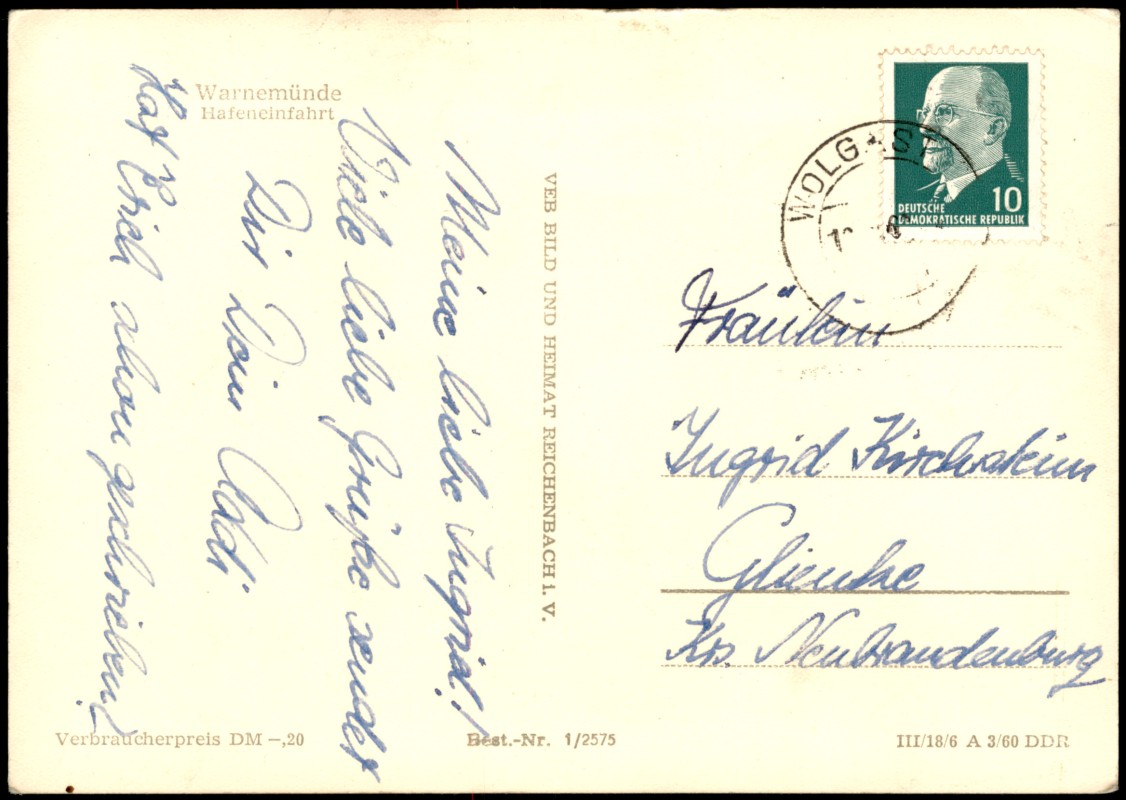 Warnemünde
Hafeneinfahrt
Meine liebe Ingrid!
Viele liebe Grüße sendet
Dir Dein Adi
Hat Erich schon geschrieben?
VEB BILD UND HEIMAT REICHENBACH i. V.
Verbraucherpreis DM –,20
Best.-Nr. 1/2575
WOLGAST
10
DEUTSCHE
DEMOKRATISCHE REPUBLIK
Fräulein
Ingrid Kirchstein
Glienke
Krs. Neubrandenburg
III/18/6 A 3/60 DDR